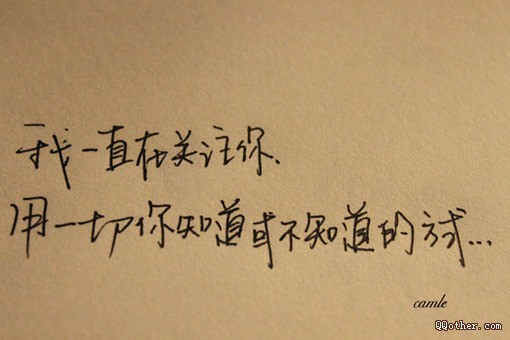 我一直在关注你.
用一切你知道或不知道的方式...
camle
QQother.com